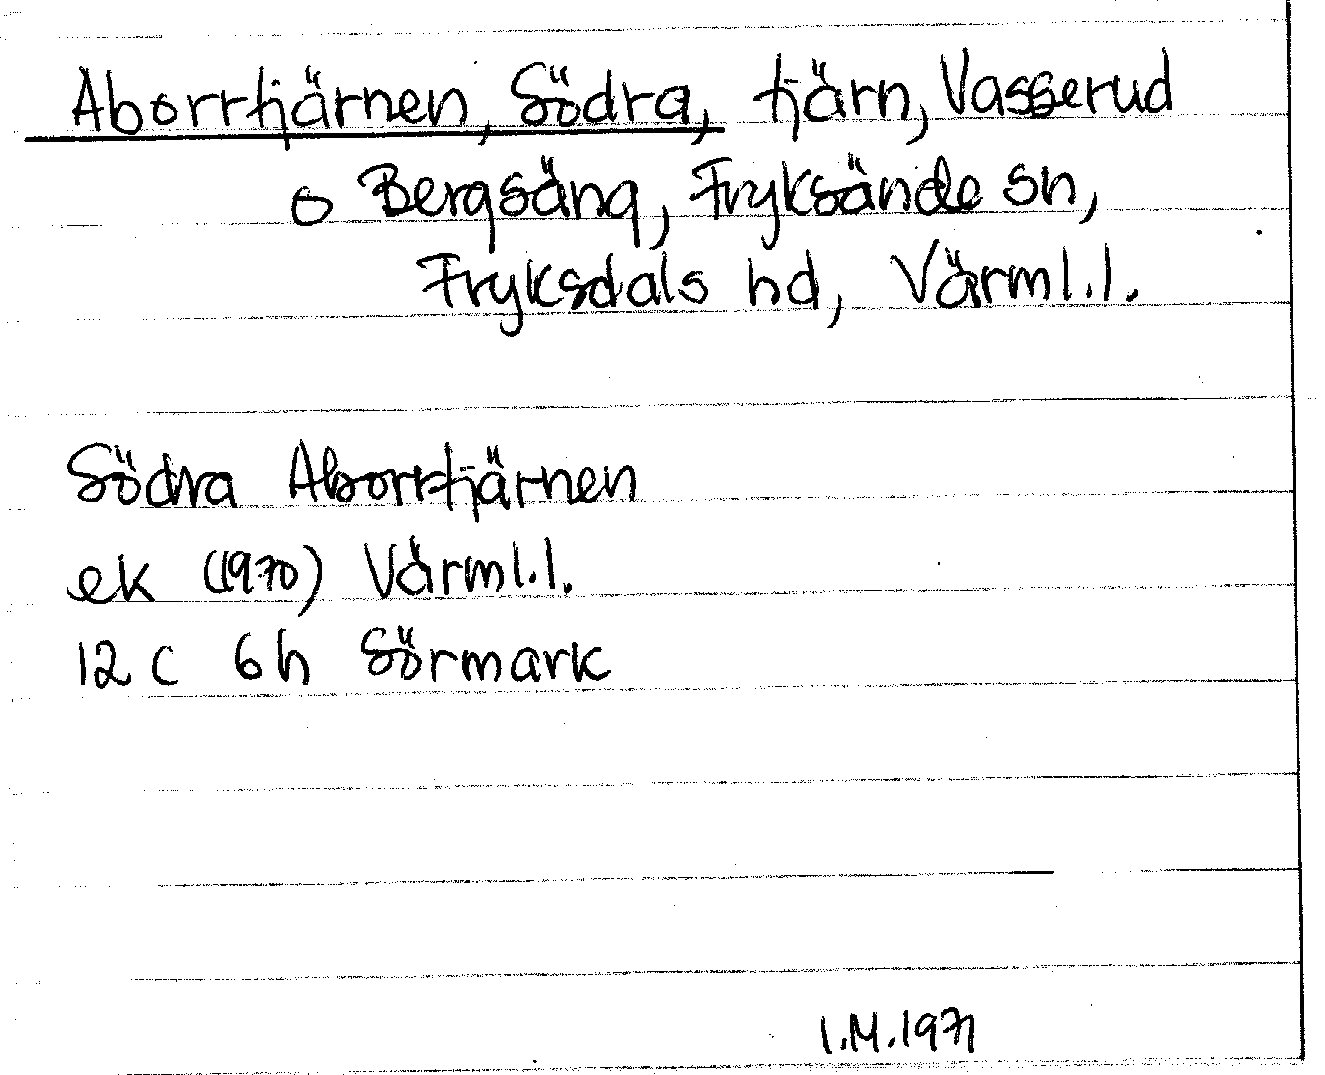 Aborrtjärnen, Södra, tjärn, Vasserud
o Bergsäng, Fryksände sn,
Fryksdals hd, Värml.l.
Södra Aborrtjärnen
ek (1970) Värml.l.
12 C 6h Sörmark
I.M.1971